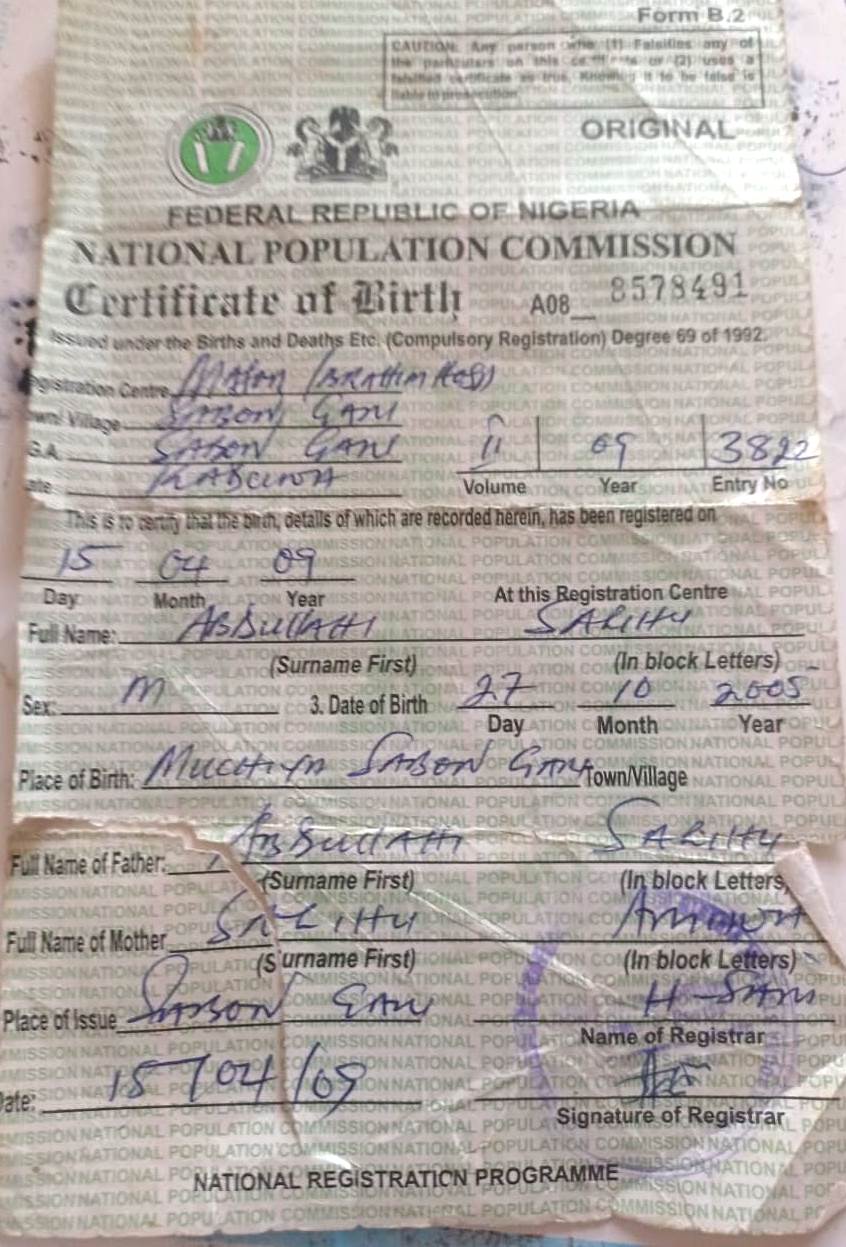 Form B.2
CAUTION: Any person who (1) Falsifies any of
the particulars on this certificate or (2) uses a
falsified certificate as true, Knowing it to be false is
liable to prosecution
ORIGINAL
FEDERAL REPUBLIC OF NIGERIA
NATIONAL POPULATION COMMISSION
Certificate of Birth A08 8578491
Issued under the Births and Deaths Etc. (Compulsory Registration) Degree 69 of 1992.
egistration Centre IBRAHIM
own/ Village SABON GARI
G.A. SABON GARI 11 09 3822
ate KADUNA Volume Year Entry No
This is to certify that the birth, details of which are recorded herein, has been registered on
15 04 09
Day Month Year At this Registration Centre
Full Name: ABDULLAHI SALIHU
(Surname First) (In block Letters)
Sex: M 3. Date of Birth 27 10 2005
Day Month Year
Place of Birth: MUCHIYA SABON GARI Town/Village
Full Name of Father: ABDULLAHI SALIHU
(Surname First) (In block Letters)
Full Name of Mother SALIHU
(Surname First) (In block Letters)
Place of Issue SABON GARI H SANI
Name of Registrar
Date: 15/04/09
Signature of Registrar
NATIONAL REGISTRATION PROGRAMME